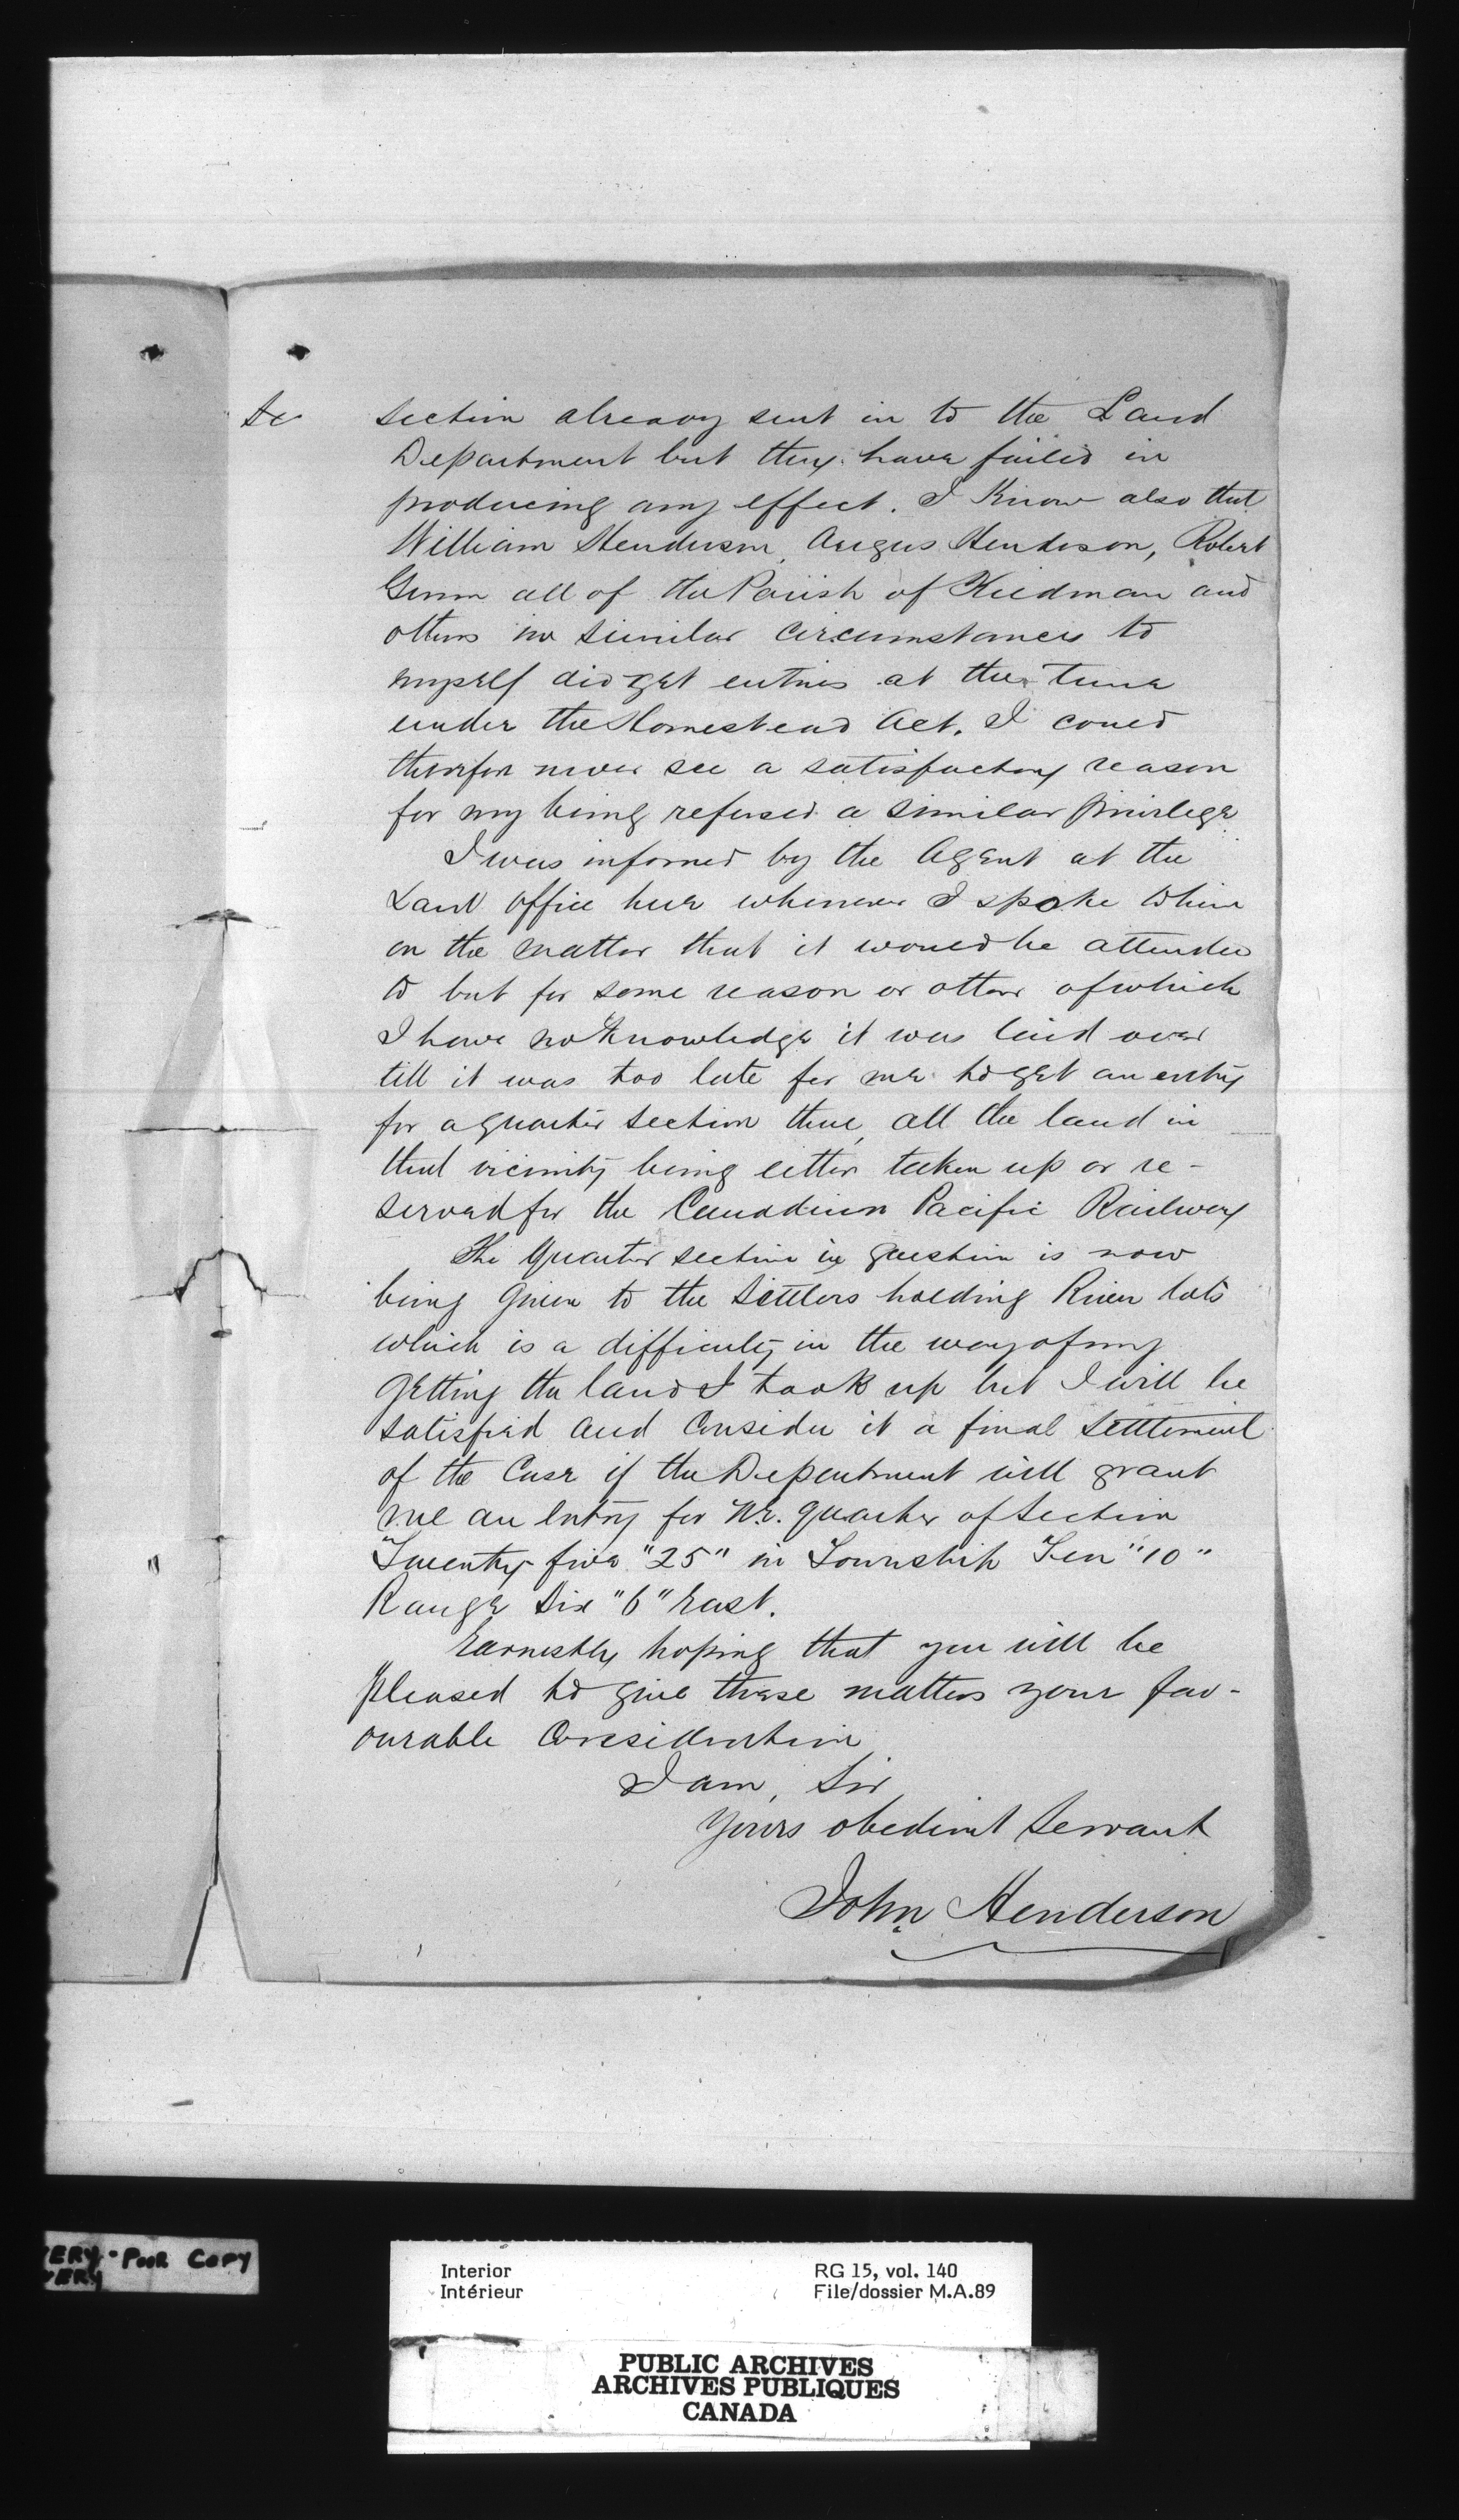 section already sent in to the Land
Department but they have failed in
producing any effect. I Know also that
William Henderson, Angus Henderson, Robert
Gunn all of the Parish of Kildonan and
others in similar circumstances to
myself did get entries at the time
under the Homestead Act. I could
therefore never see a satisfactory reason
for my being refused a similar privilege
I was informed by the Agent at the
Land Office here whenever I spoke to him
on the matter that it would be attended
to but for some reason or other of which
I have no knowledge it was laid over
till it was too late for me to get an entry
for a quarter section there, all the land in
that vicinity being either taken up or re-
served for the Canadian Pacific Railway
The Quarter section in question is now
being given to the Settlers holding River lots
which is a difficulty in the way of my
getting the land I took up but I will be
satisfied and Consider it a final Settlement
of the Case if the Department will grant
me an Entry for N.E. quarter of Section
Twenty five "25" in Township Ten "10"
Range Six "6" East.
Earnestly hoping that you will be
pleased to give these matters your fav-
ourable Consideration
I am, Sir
Yours obedient Servant
John Henderson
POOR COPY
Interior
Intérieur
RG 15, vol. 140
File/dossier M.A.89
PUBLIC ARCHIVES
ARCHIVES PUBLIQUES
CANADA